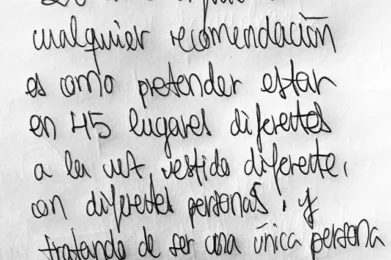 cualquier recomendación
es como pretender estar
en 45 lugares diferentes
a la vez, vestido diferente,
con diferentes personas, y
tratando de ser una única persona